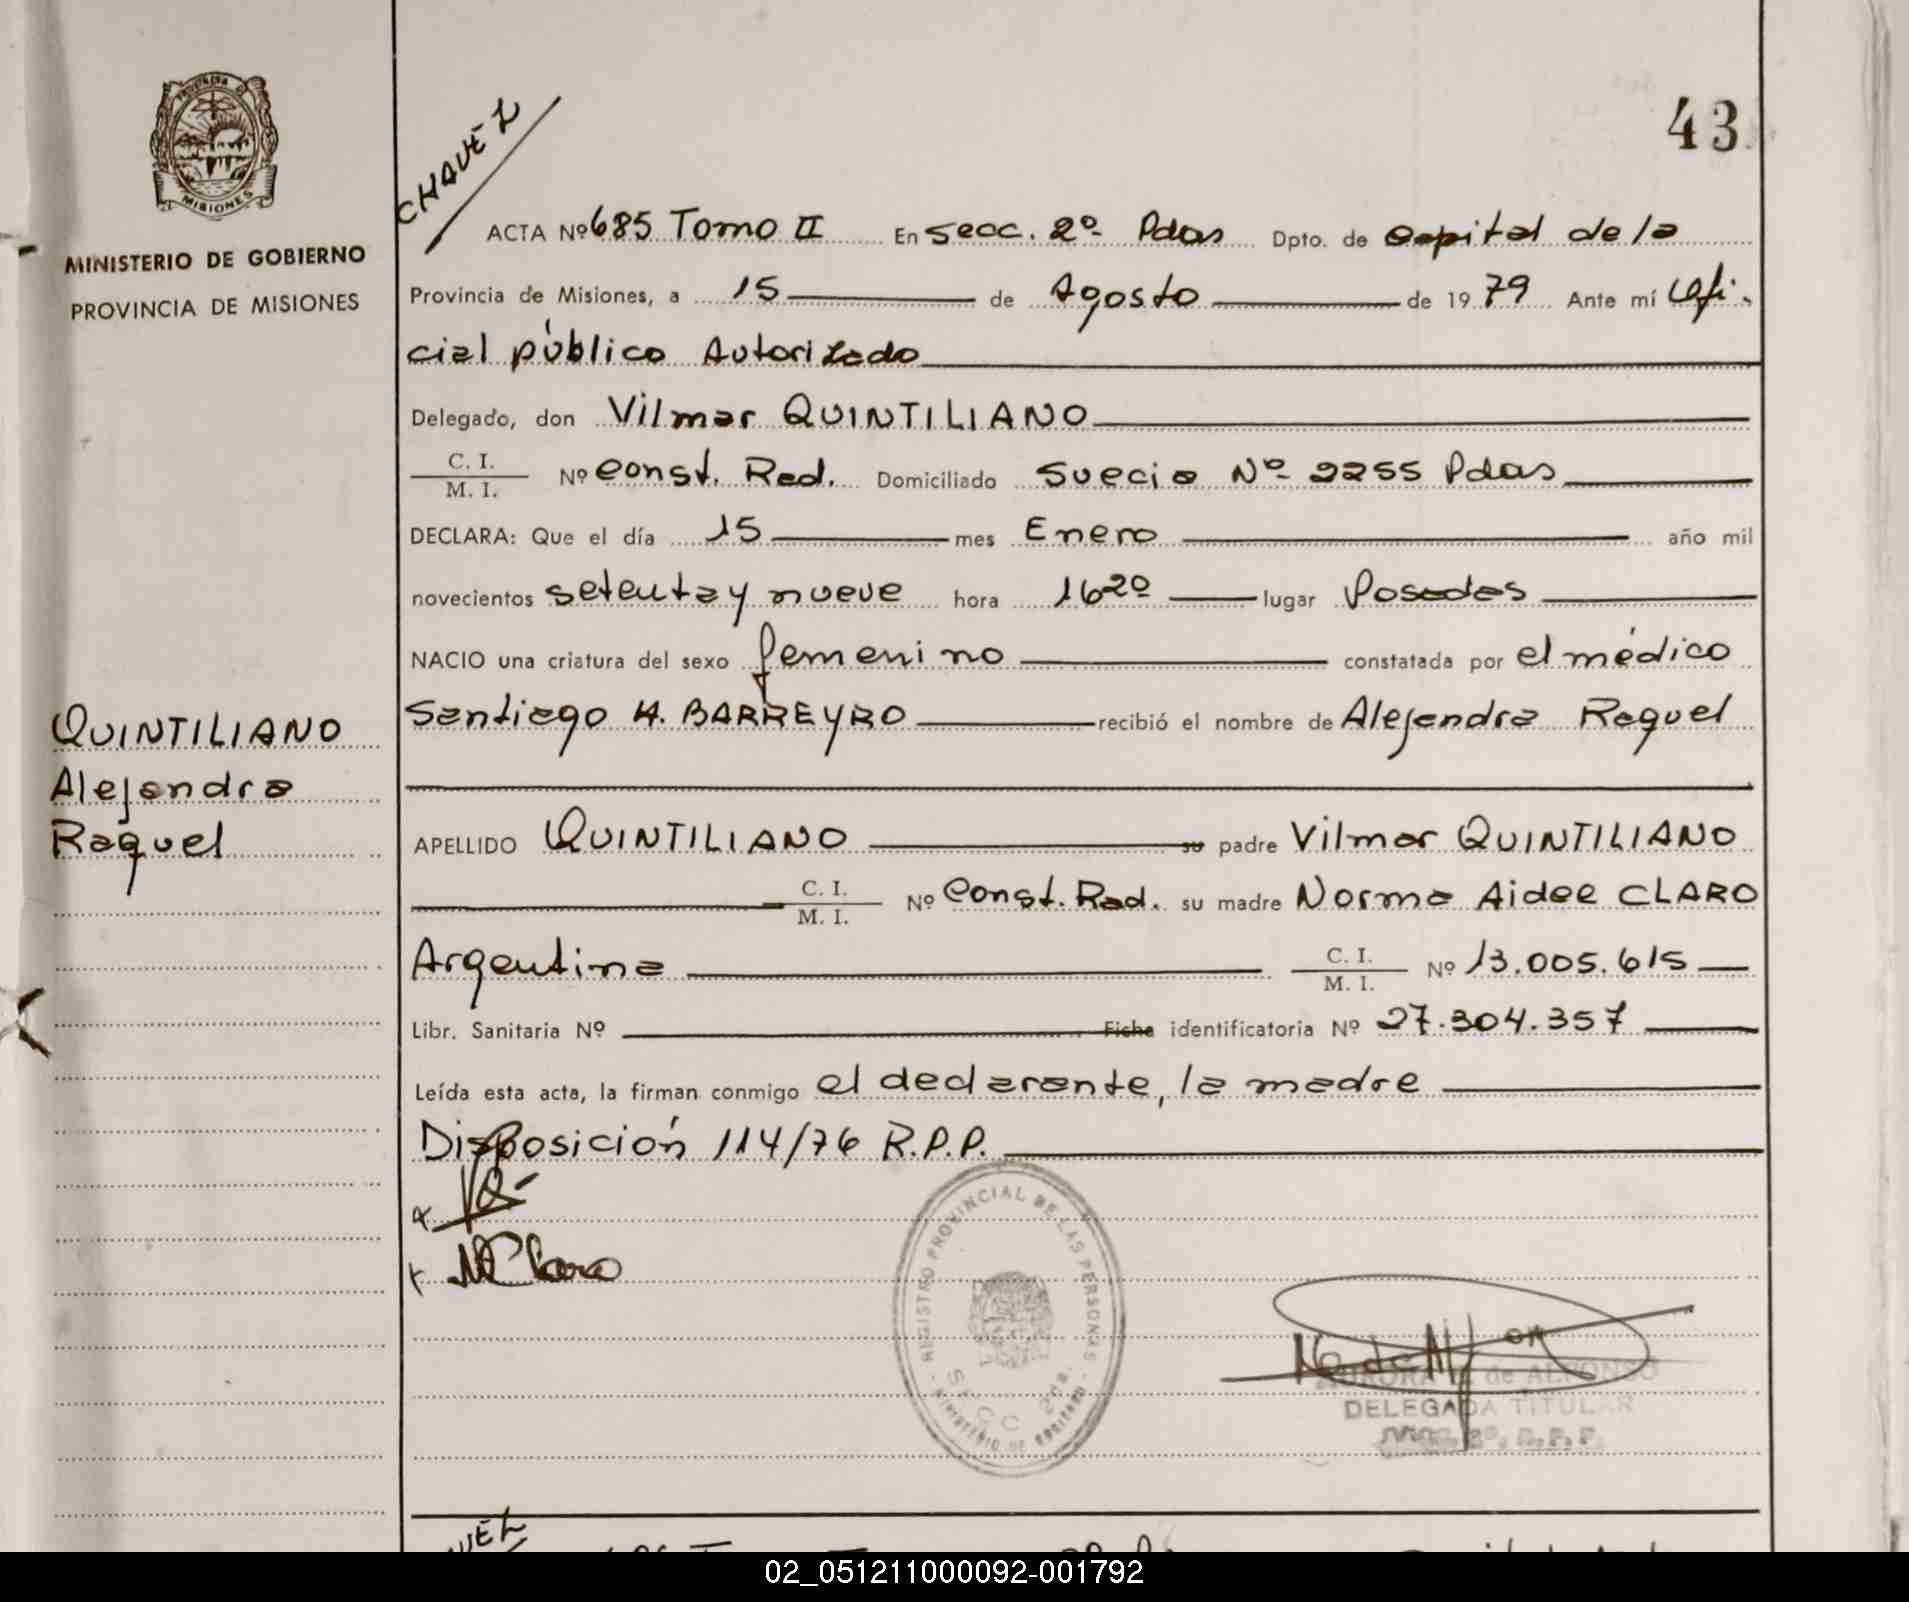 43
CHAVEZ
PROVINCIA DE
MISIONES
MINISTERIO DE GOBIERNO
PROVINCIA DE MISIONES
ACTA Nº 685 Tomo II En Secc. 2º Pdas Dpto. de Capital de la
Provincia de Misiones, a 15 de Agosto de 1979 Ante mí Ofi-
cial público Autorizado
Delegado, don Vilmar QUINTILIANO
C. I.
M. I.
Nº Const. Rad. Domiciliado Suecia Nº 2255 Pdas
DECLARA: Que el día 15 mes Enero año mil
novecientos setenta y nueve hora 16²⁰ lugar Posadas
NACIO una criatura del sexo femenino constatada por el médico
Santiago H. BARREYRO recibió el nombre de Alejandra Raquel
QUINTILIANO
Alejandra
Raquel
APELLIDO QUINTILIANO su padre Vilmar QUINTILIANO
C. I.
M. I.
Nº Const. Rad. su madre Norma Aidee CLARO
Argentina C. I.
M. I.
Nº 13.005.615
Libr. Sanitaria Nº Ficha identificatoria Nº 27.304.357
Leída esta acta, la firman conmigo el declarante, la madre
Disposición 114/76 R.P.P.
REGISTRO PROVINCIAL DE LAS PERSONAS
SECC 2da.
MINISTERIO DE GOBIERNO
de ALFONSO
DELEGADA TITULAR
02_051211000092-001792